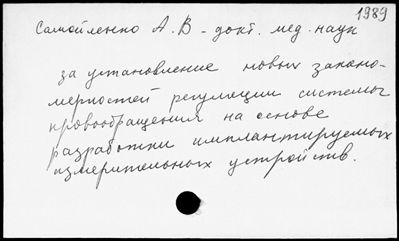 1989
Самойленко А.В - докт. мед. наук
за установление новых законо-
мерностей регуляции системы
кровообращения на основе
разработки имплантируемых
измерительных устройств.